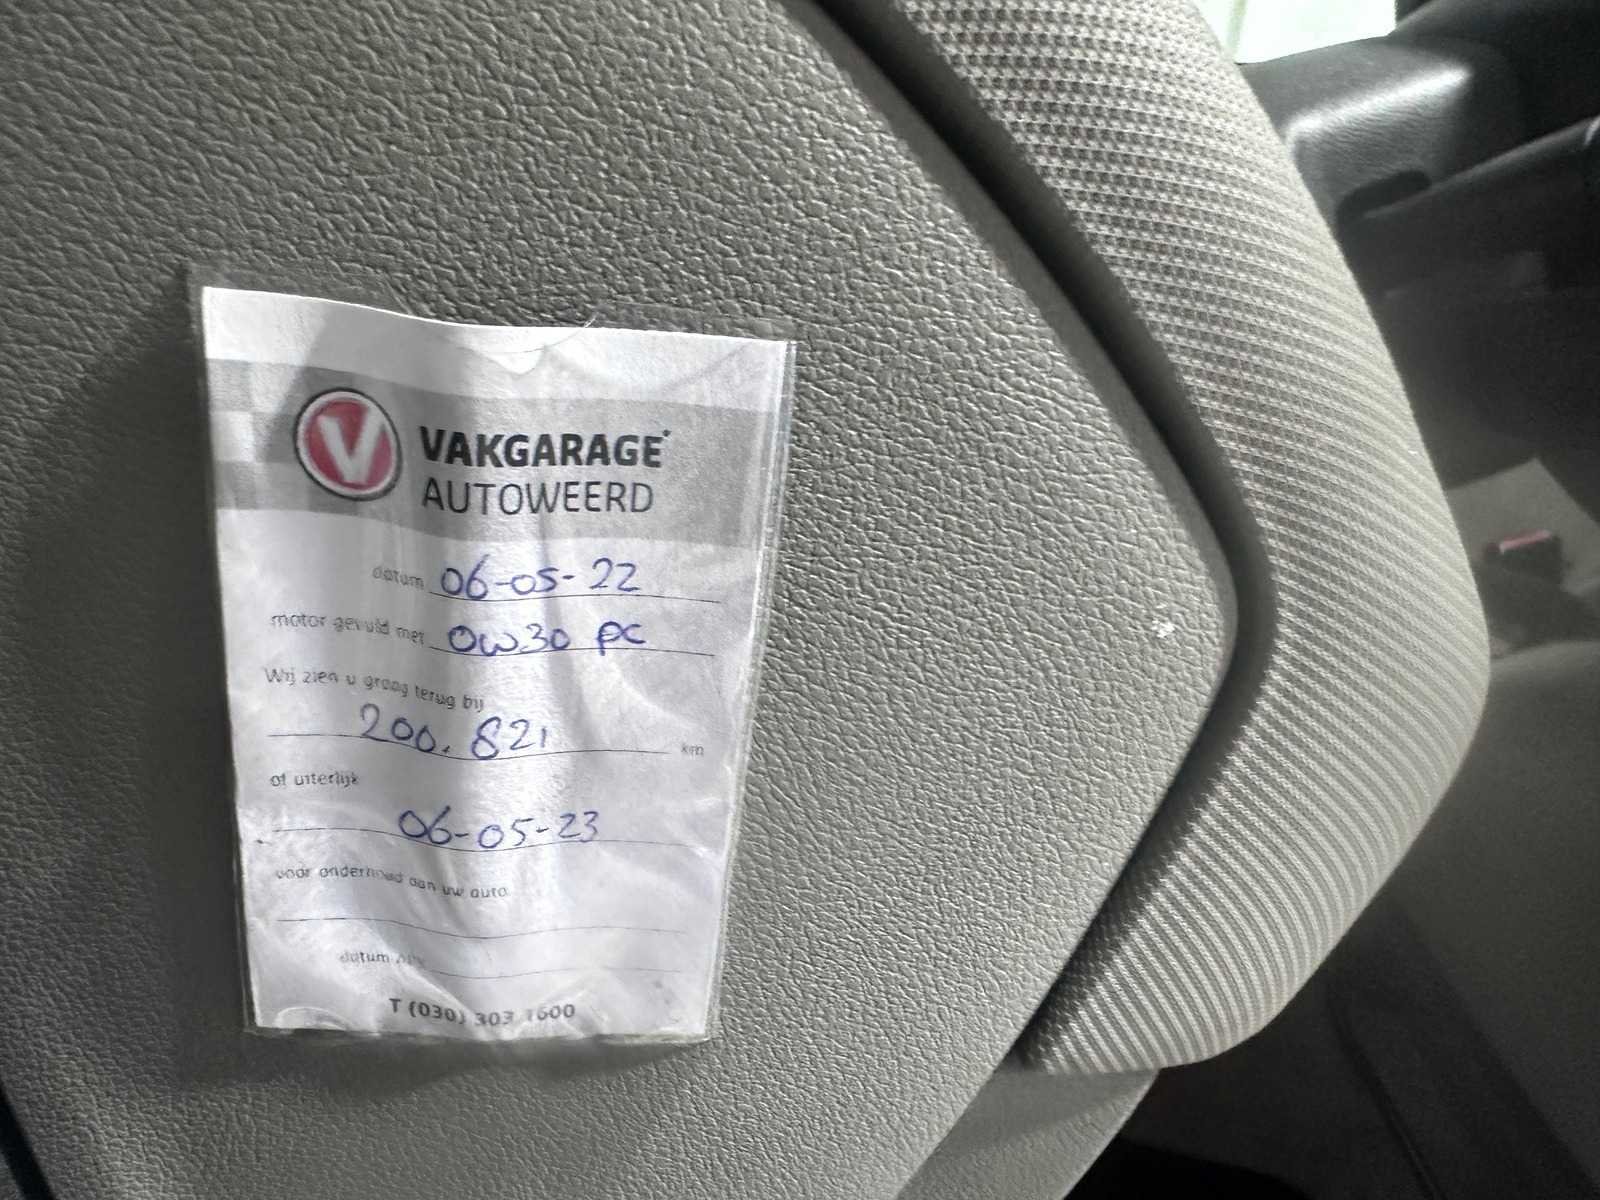 V
VAKGARAGE
AUTOWEERD
datum 06-05-22
motor gevuld met 0w30 PC
Wij zien u graag terug bij
200.821 km
of uiterlijk
06-05-23
voor onderhoud aan uw auto
datum
T (030) 303 1600